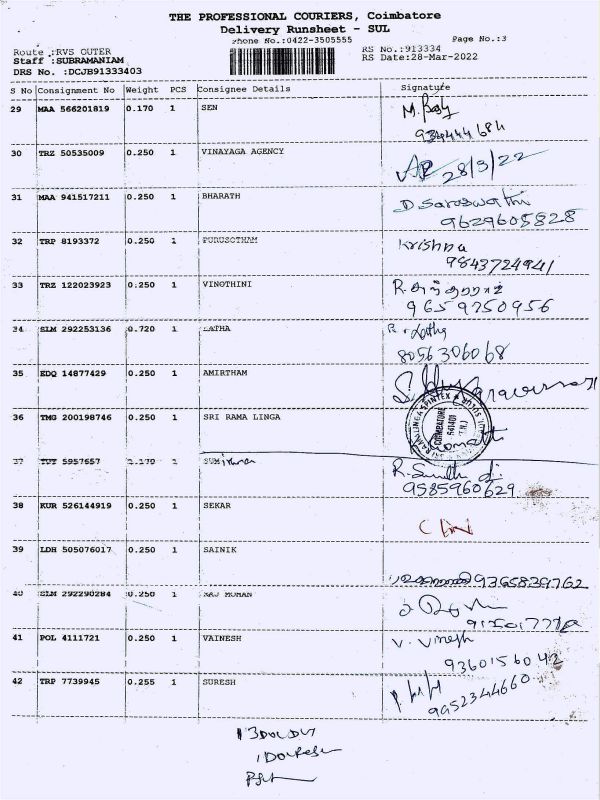 THE PROFESSIONAL COURIERS, Coimbatore
Delivery Runsheet - SUL
Phone No.:0422-3505555
Page No.:3
Route :RVS OUTER
RS No.:913334
Staff :SUBRAMANIAM
RS Date:28-Mar-2022
DRS No. :DCJB91333403
S No Consignment No Weight PCS Consignee Details Signature
29 MAA 566201819 0.170 1 SEN
30 TRZ 50535009 0.250 1 VINAYAGA AGENCY 28/3/22
31 MAA 941517211 0.250 1 BHARATH D. Saraswathi
9629605828
32 TRP 8193372 0.250 1 PURUSOTHAM Krishna
9843724941
33 TRZ 122023923 0.250 1 VINOTHINI R.
9659750956
34 SLM 292253136 0.720 1 LATHA R. Latha
8056306068
35 EDQ 14877429 0.250 1 AMIRTHAM
36 TMG 200198746 0.250 1 SRI RAMA LINGA
COIMBATORE
641401
37 TUT 5957657 1.170 1
9585960629
38 KUR 526144919 0.250 1 SEKAR
39 LDH 505076017 0.250 1 SAINIK 9365839762
40 SLM 292290284 0.250 1 RAJ MOHAN
41 POL 4111721 0.250 1 VAINESH V. Vinesh
9360156042
42 TRP 7739945 0.255 1 SURESH
9952344660